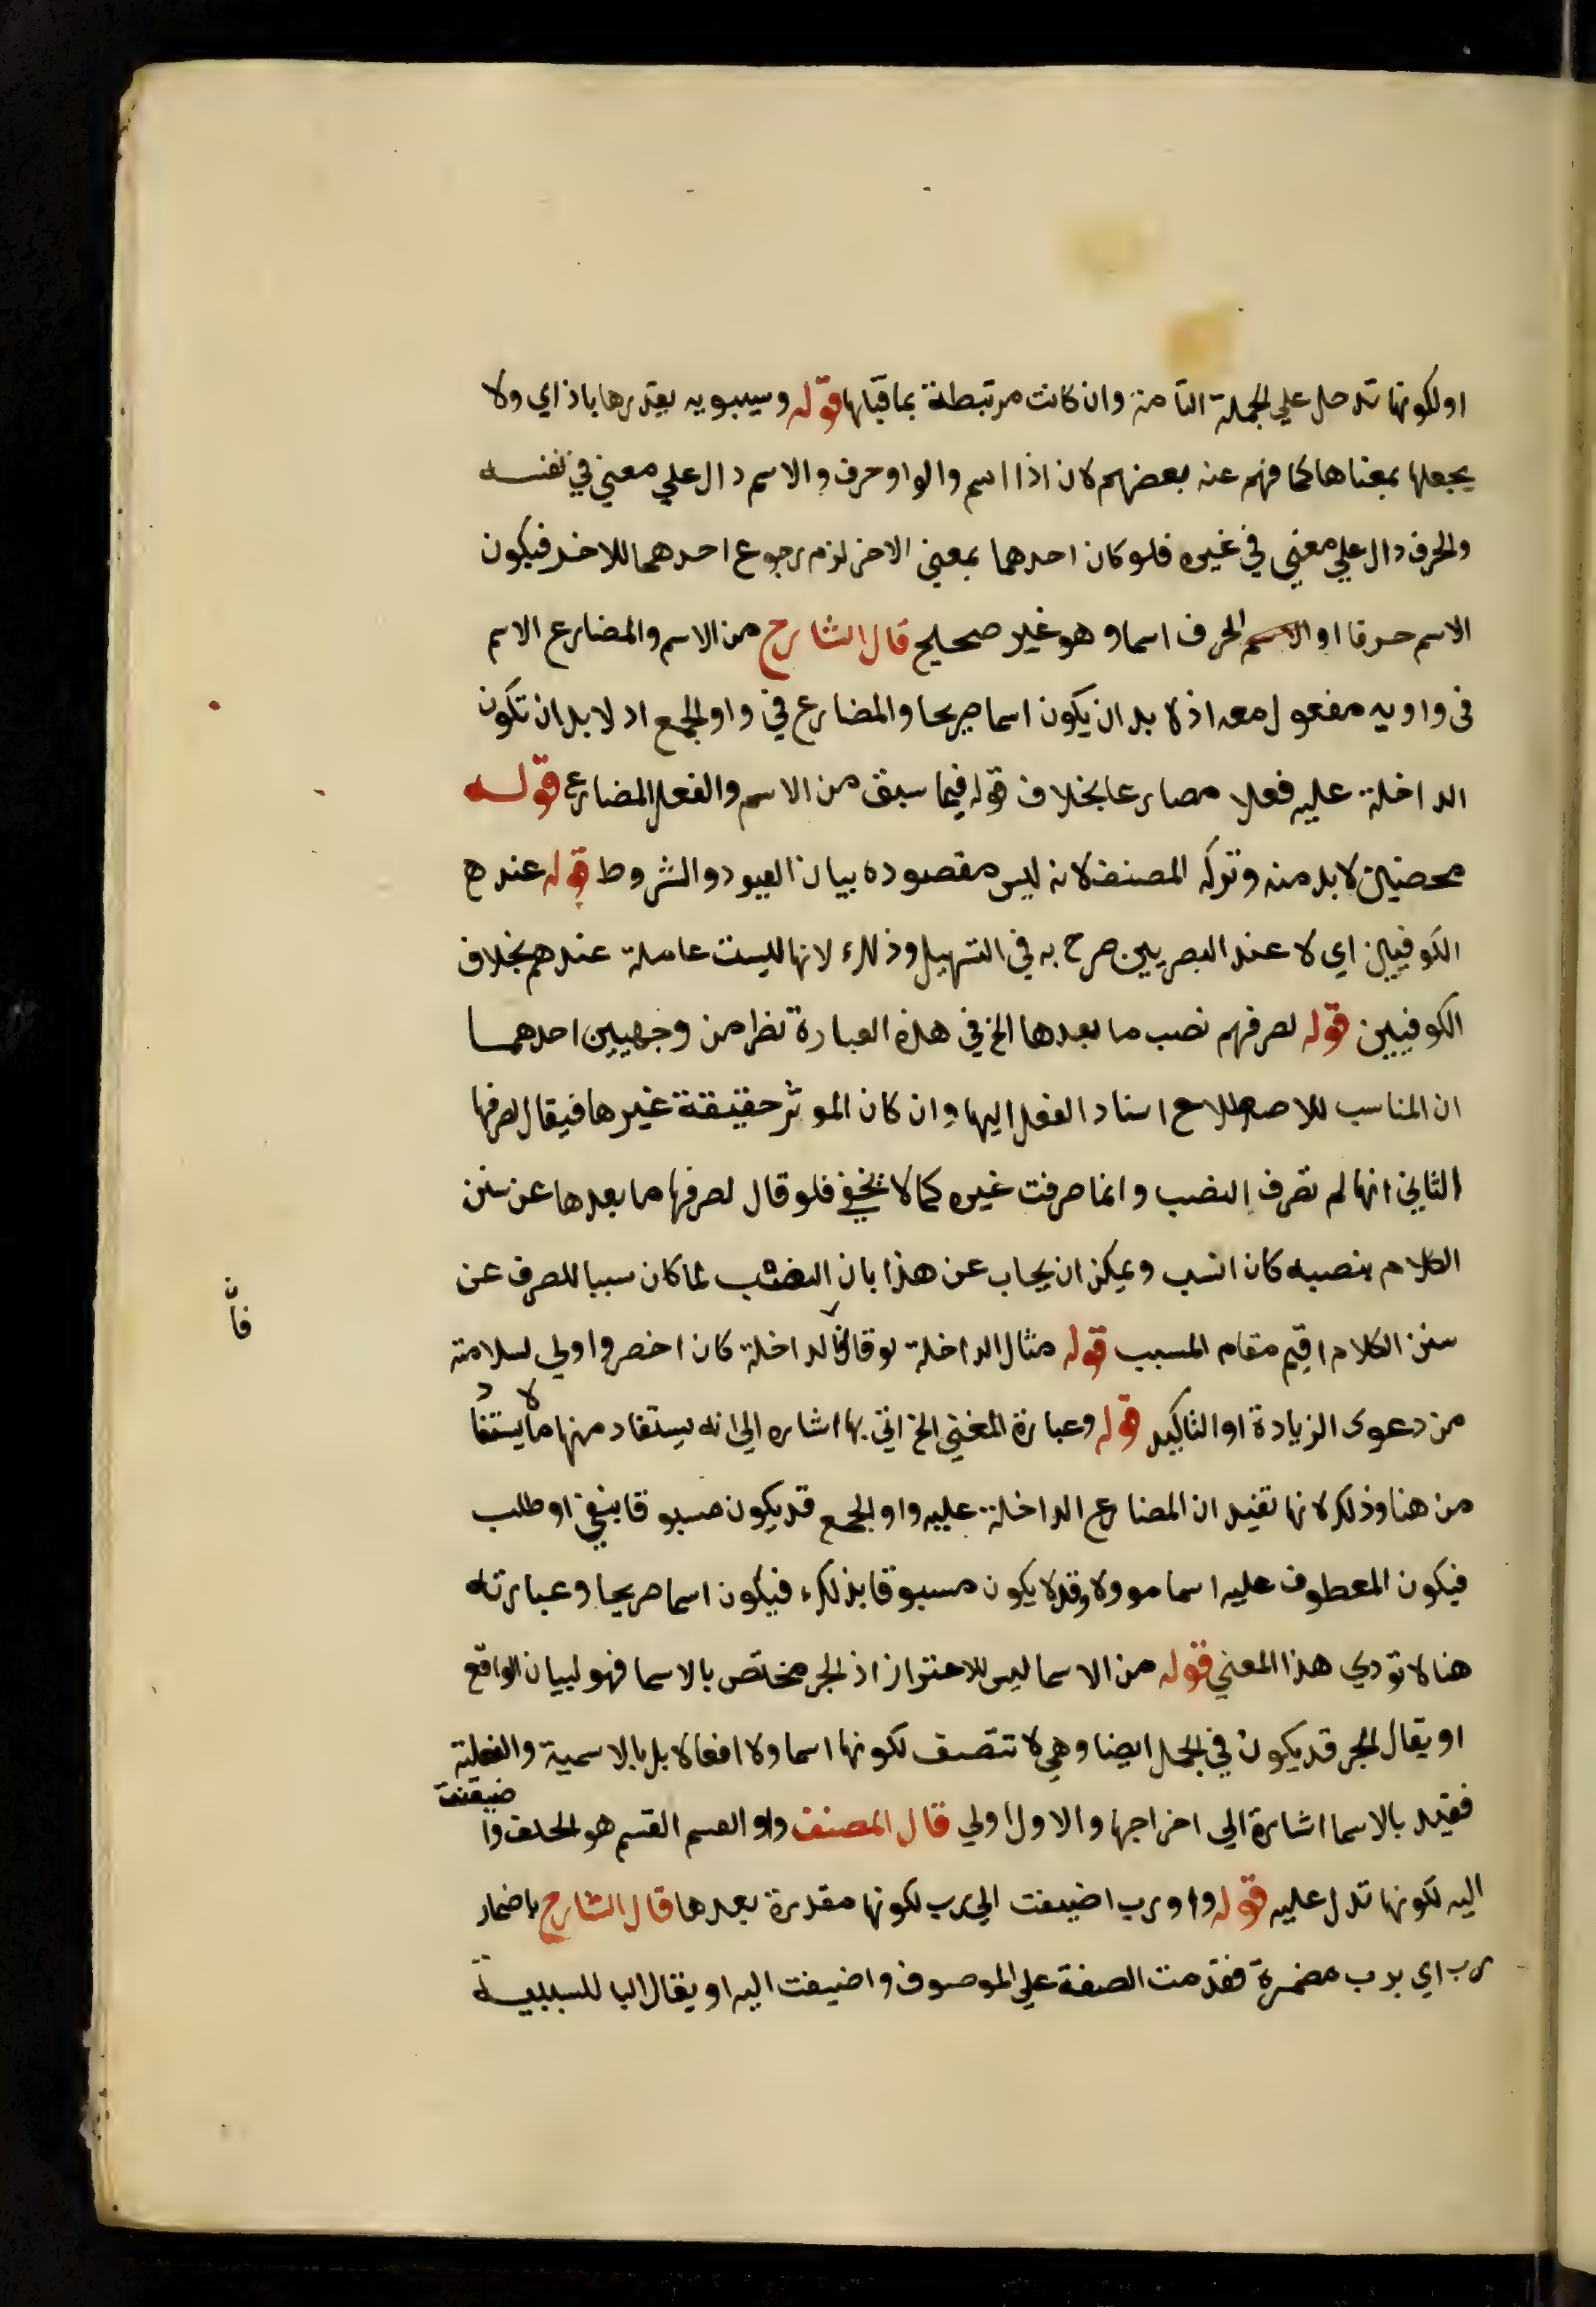 او لكونها تدخل علي الجملة التامة وان كانت مرتبطة بما قبلها قوله وسيبويه يقدرها باذ اي ولا
يجعلها بمعناها كما فهم عنه بعضهم لان اذا اسم والواو حرف والاسم دال علي معني في نفسه
والحرف دال علي معني في غيره فلو كان احدهما بمعني الاخر لزم رجوع احدهما للاخر فيكون
الاسم حرفا او الحرف اسما وهو غير صحيح قال الشارح من الاسم والمضارع الاسم
في واو يه مفعول معه اذ لا بد ان يكون اسما صريحا والمضارع في واو الجمع اد لا بد ان تكون
الداخلة عليه فعلا مصارعا بخلاف قوله فيما سبق من الاسم والفعل المضارع قوله
محضين لا بد منه وتركه المصنف لانه ليس مقصوده بيان القيود والشروط قوله عند ه
الكوفيين اي لا عند البصريين صرح به في التسهيل وذلك لانها ليست عاملة عندهم بخلاف
الكوفيين قوله لصرفهم نصب ما بعدها الخ في هذه العبارة نظر من وجهين احدهما
ان المناسب للاصطلاح اسناد الفعل اليها وان كان الموثر حقيقة غيرها فيقال لصرفها
الثاني انها لم تصرف النصب وانما صرفت غيره كما لا يخفي فلو قال لصرفها ما بعدها عن سنن
الكلام بنصبه كان انسب ويمكن ان يجاب عن هذا بان النصب لما كان سببا للصرف عن
سنن الكلام اقيم مقام المسبب قوله مثال الداخلة لو قال فالداخلة كان اخصر واولي لسلامته
من دعوى الزيادة او التاكيد قوله وعبارة المغني الخ اتي بها اشاره الي انه يستفاد منها ما لا يستفاد
من هنا وذلك لانها تفيد ان المضارع الداخلة عليه واو الجمع قد يكون مسبوقا بنفي او طلب
فيكون المعطوف عليه اسما موولا وقد لا يكون مسبوقا بذلك فيكون اسما صريحا وعبارته
هنا لا تودي هذا المعني قوله من الاسما ليس للاحتراز اذ الجر مختص بالاسما فهو لبيان الواقع
او يقال الجر قد يكون في الجمل ايضا وهي لا تتصف بكونها اسما ولا افعالا بل بالاسمية والفعلية
فقيد بالاسما اشارة الي اخراجها والاول اولي قال المصنف واو القسم القسم هو الحلف وا ضيفت
اليه لكونها تدل عليه قوله واو رب اضيفت الي رب لكونها مقدرة بعدها قال الشارح باضمار
رب اي برب مضمرة فقدمت الصفة علي الموصوف واضيفت اليه او يقال البا للسببية